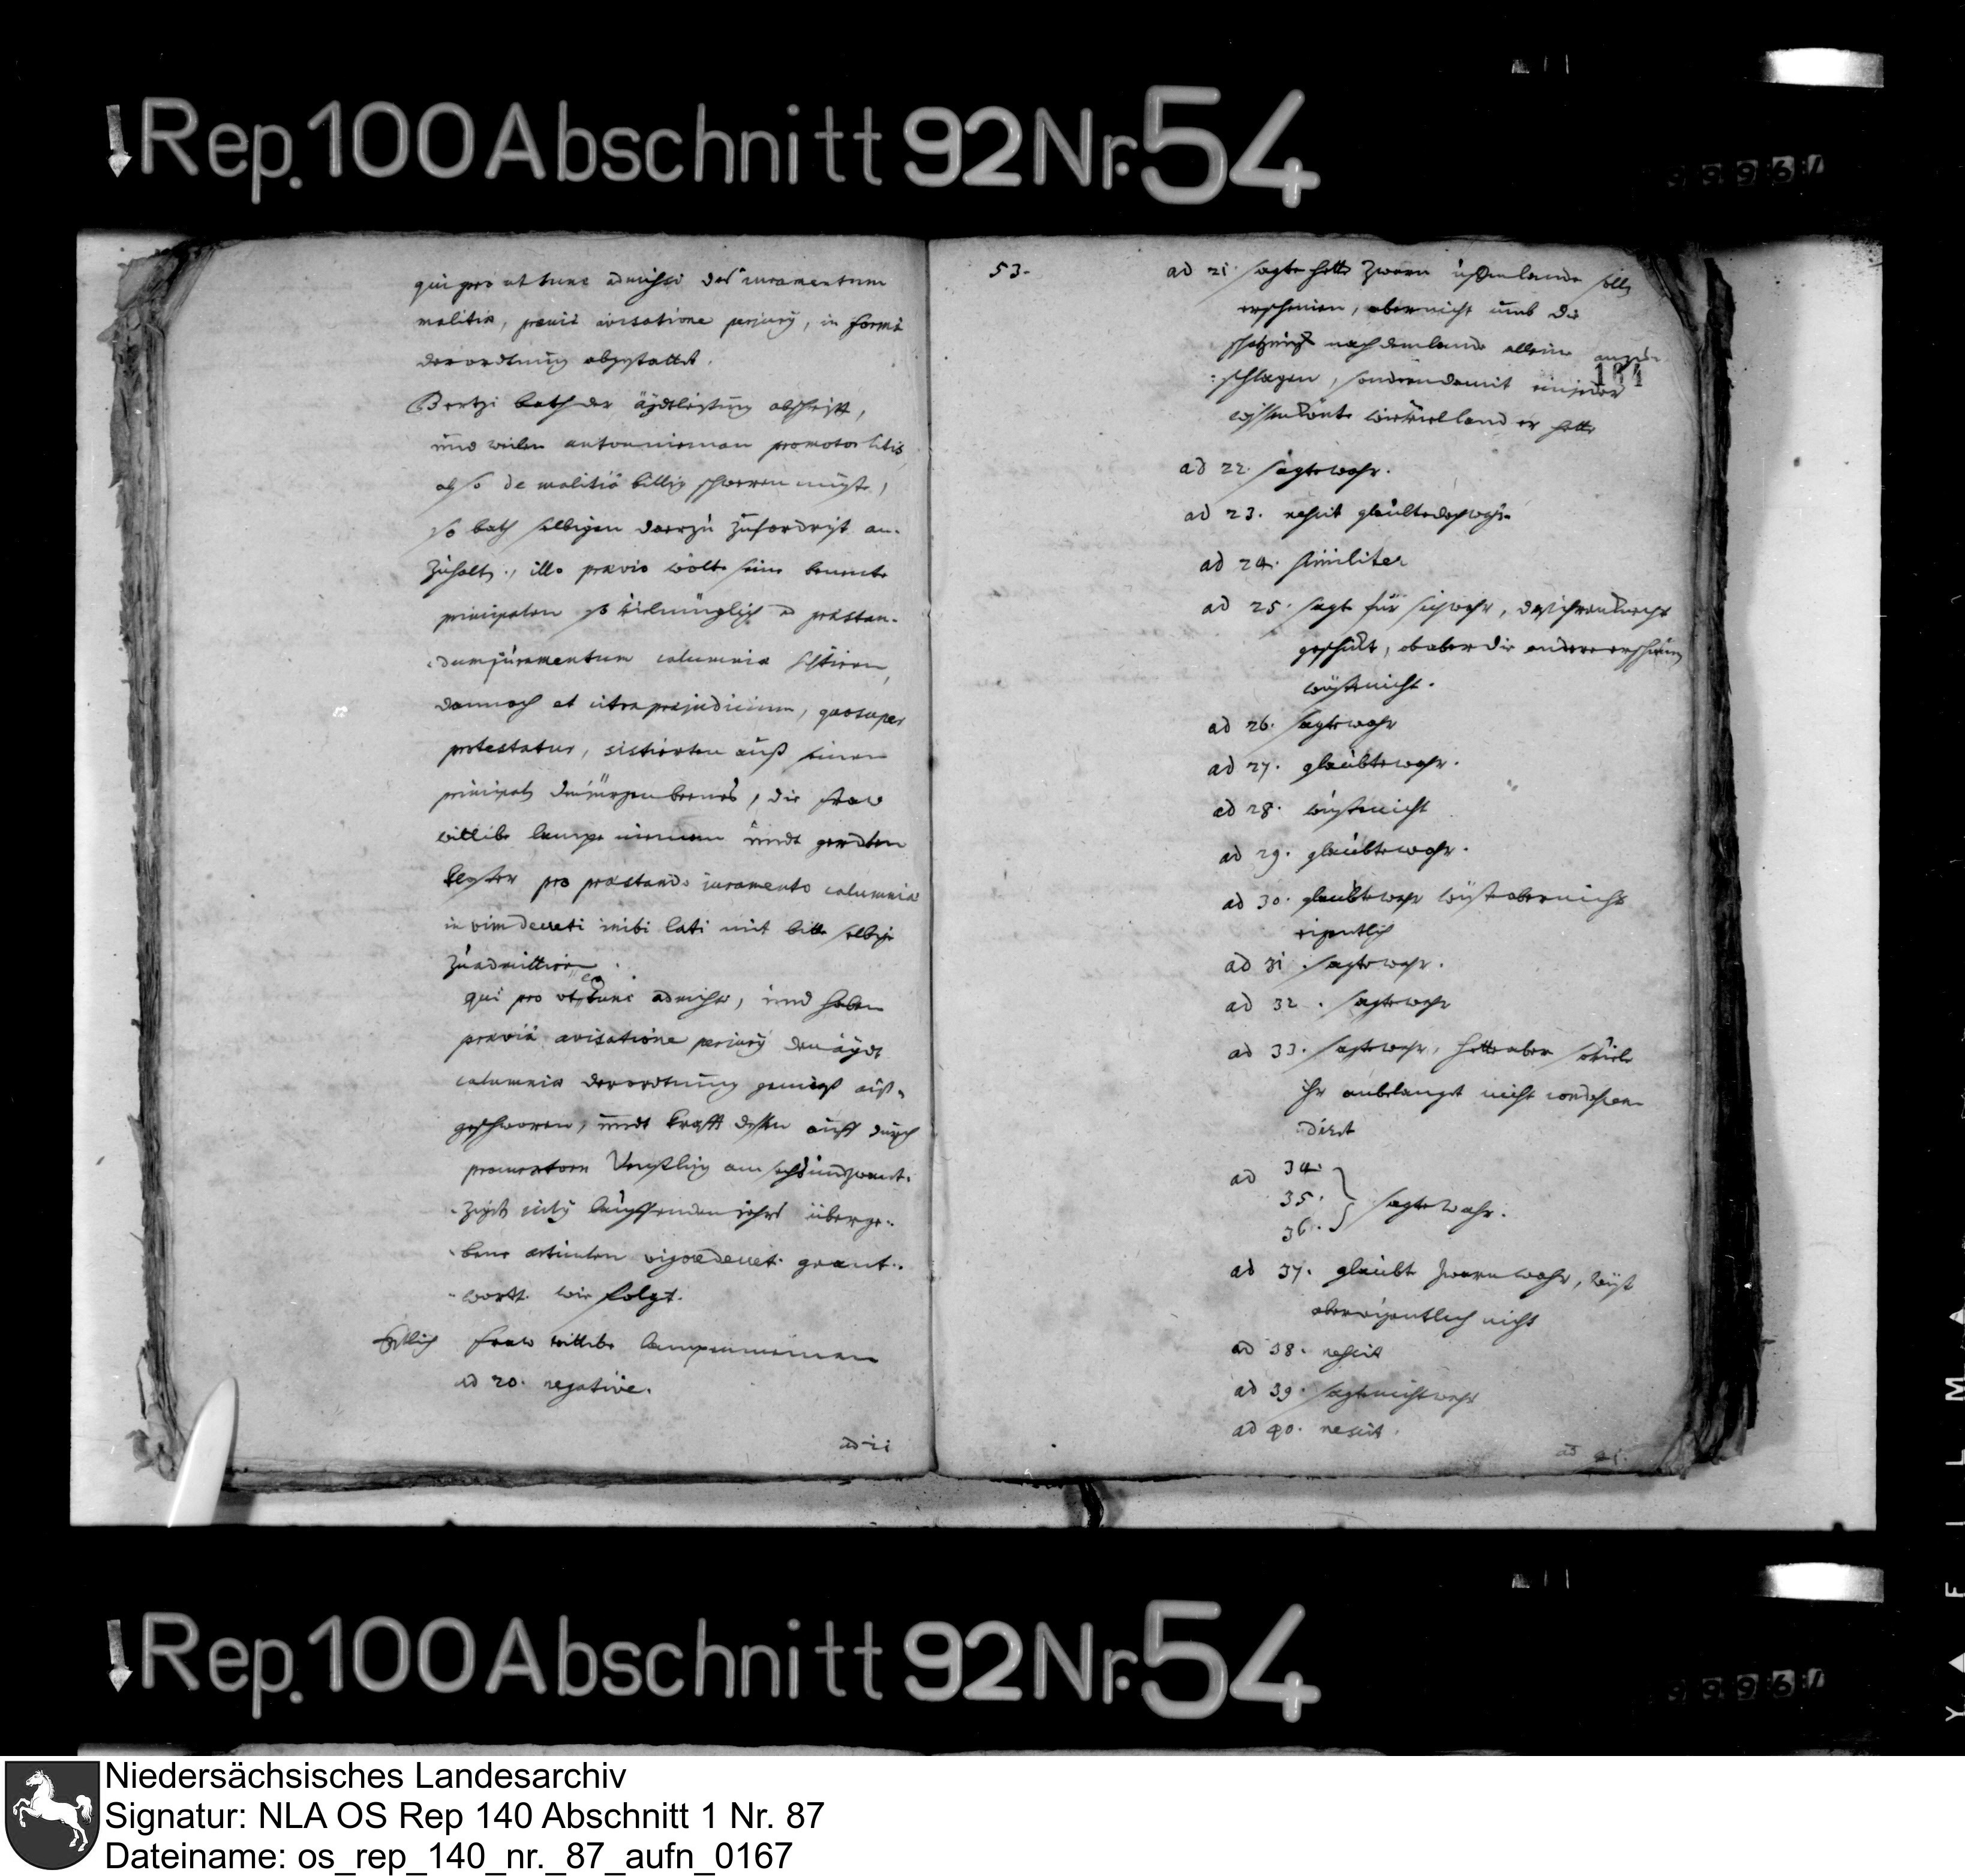 Rep. 100 Abschnitt 92 Nr. 54
qui pro ut tunc admissi das iuramentum
malitiæ, præviâ avisatione perjurÿ, in formâ
der ordtnung abgestattet.
bath der äÿdtleistung abschrifft,
und weilen promotor litis
also de malitiâ billig schweren müste,
so bath selbigen darzu zufordrist an-
zuhalten, illo prævio wolte seine benente
principalen so ad præstan-
dum juramentum calumniæ sistiren,
dannoch et citra præjudicium, quo super
protestatur, sistierten auß seinen
principalen die fraw
wittibe undt gerdten
pro præstando iuramento calumniæ
in vim decreti inibi lati mit bitte selbige
zu admittiren.
qui pro ut tunc admissi, und haben
præviâ avisatione perjurÿ den äÿdt
calumniæ der ordtnung gemeeß auß-
geschworen, undt krafft deßen auff durch
procuratorn am sechsundzwant-
zigsten julÿ lauffenden jahrs überge-
bene articulen vigore decreti geant-
wortt wie folgt.
Erstlich fraw wittibe
ad 20. negativè.
ad 21
53.
ad 21. sagte hette zwarn
erscheinen, aber nicht umb die
schatzung nach dem lande allein anzu-
schlagen, sondern damit ein jeder
wissen könte wie viel land er hette
184
ad 22. sagte wahr.
ad 23. nescit glaubte doch wahr
ad 24. similiter
ad 25. sagt für sich wahr, daß ihren knecht
geschickt, ob aber die andere erschienen
wüste nicht.
ad 26. sagte wahr
ad 27. glaubte wahr.
ad 28. wüste nicht
ad 29. glaubte wahr.
ad 30. glaubte wahr wüst aber nicht
eigentlich
ad 31. sagte wahr.
ad 32. sagte wahr
ad 33. sagte wahr, hette aber soviele
ihr anbelanget nicht condescen-
dirt
ad 34.
35.
36. sagte wahr.
ad 37. glaubt zwarn wahr, wüst
aber eigentlich nicht
ad 38. nescit
ad 39. sagte nicht wahr
ad 40. nescit.
ad 41.
Rep. 100 Abschnitt 92 Nr. 54
Niedersächsisches Landesarchiv
Signatur: NLA OS Rep 140 Abschnitt 1 Nr. 87
Dateiname: os_rep_140_nr._87_aufn_0167